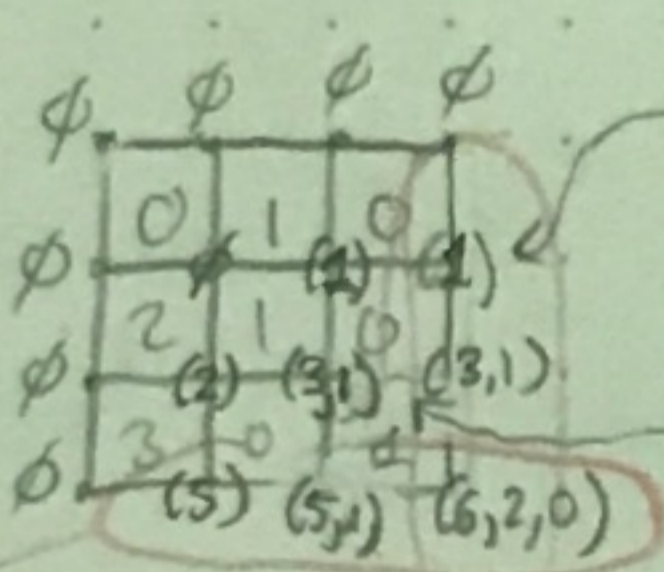 ∅ ∅ ∅ ∅
0 1 0
∅ ∅ (1) (1)
2 1 0
∅ (2) (3,1) (3,1)
3 0 1
∅ (5) (5,1) (6,2,0)